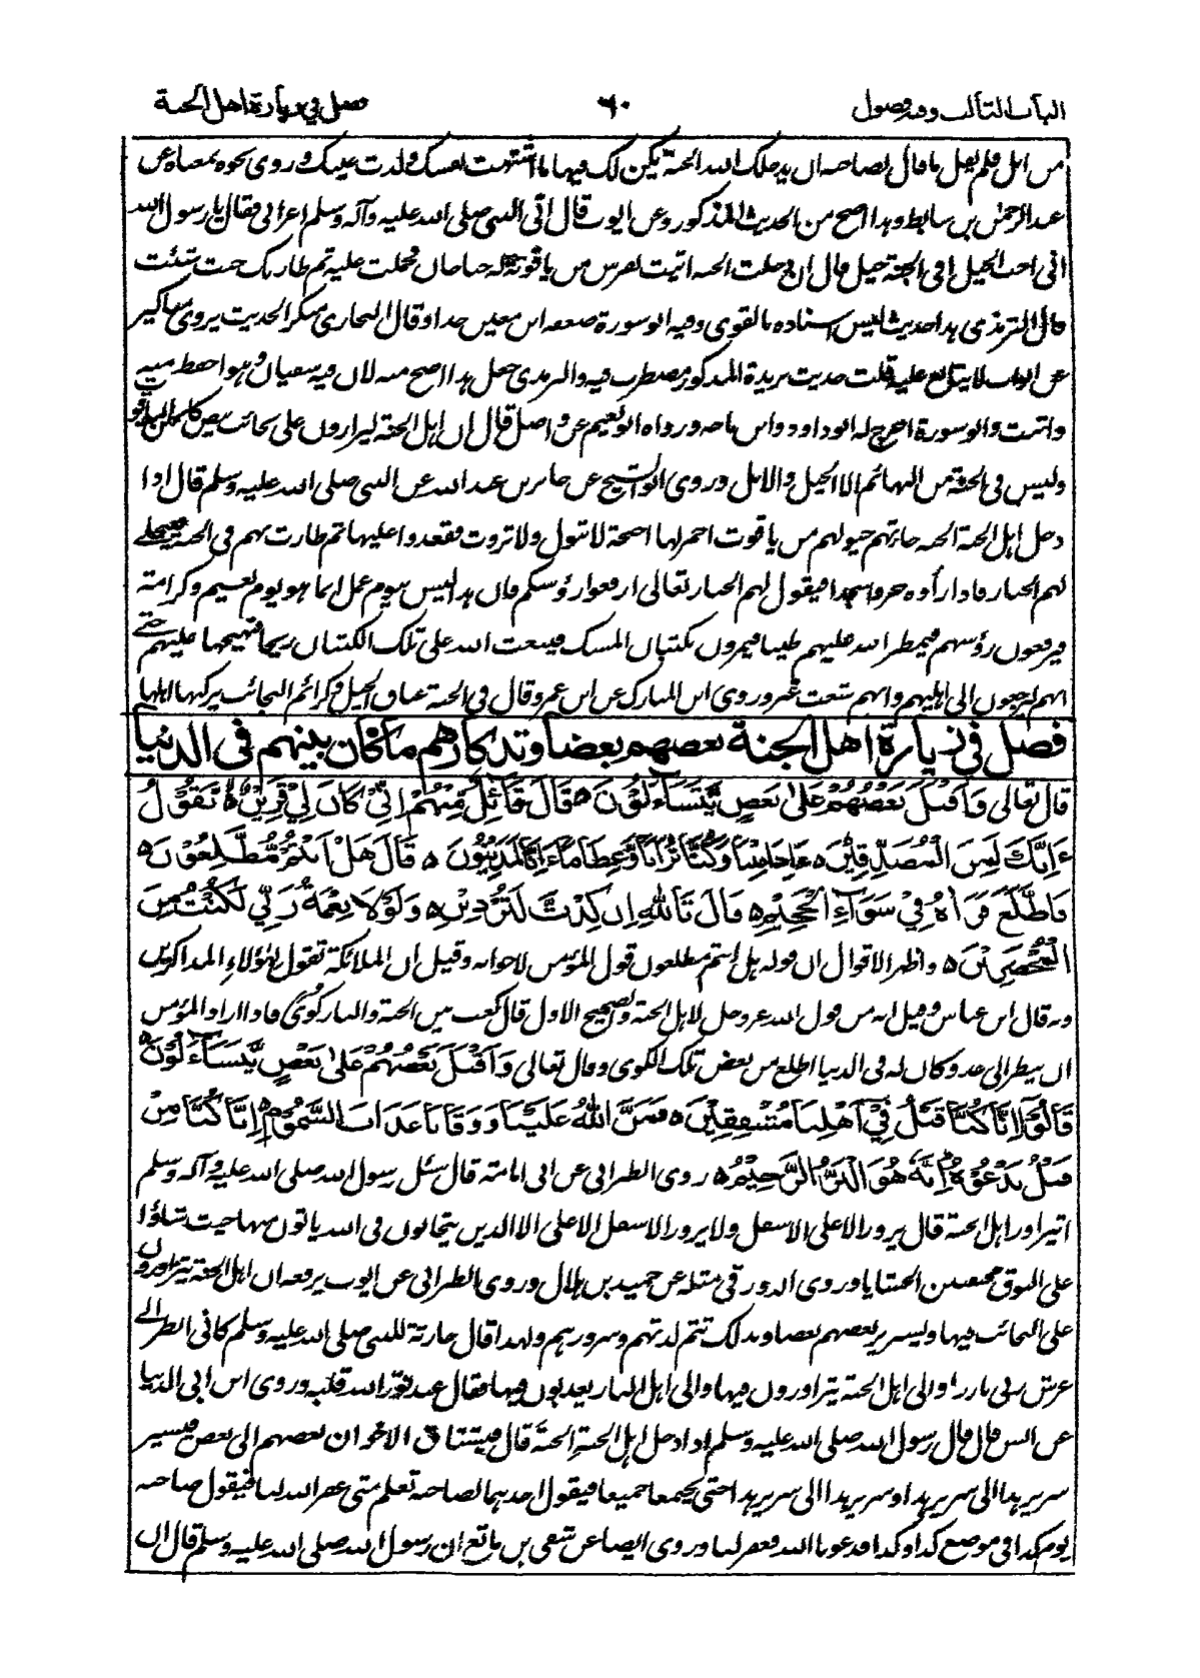 الباب الثالث وفيه فصول ٦٠ فصل في زيارة اهل الجنة
من ابل فلم يقل ما قال لصاحبه ان يدخلك الله الجنة يكن لك فيها ما اشتهت نفسك ولذت عينك وروى نحوه بمعناه عن
عبد الرحمن بن سابط وهذا اصح من الحديث المذكور وعن ايوب قال اتى النبي صلى الله عليه وآله وسلم اعرابي فقال يا رسول الله
اني احب الخيل افي الجنة خيل قال ان دخلت الجنة اتيت بفرس من ياقوتة له جناحان فحملت عليه ثم طار بك حيث شئت
قال الترمذي هذا حديث ليس اسناده بالقوي وفيه ابو سورة ضعفه ابن معين جدا وقال البخاري منكر الحديث يروي مناكير
عن ايوب لا يتابع عليه قلت حديث بريدة المذكور مضطرب فيه والترمذي جعل هذا اصح منه لان فيه سفيان وهو احفظ منه
واثبت وابو سورة اخرج له ابو داود وابن ماجه ورواه ابو نعيم عن واصل قال ان اهل الجنة ليزاورون على نجائب بيض كانهن الياقوت
وليس في الجنة من البهائم الا الخيل والابل وروى ابو الشيخ عن جابر بن عبد الله عن النبي صلى الله عليه وسلم قال اذا
دخل اهل الجنة الجنة جاءتهم خيولهم من ياقوت احمر لها اجنحة لا تبول ولا تروث فقعدوا عليها ثم طارت بهم في الجنة فيتجلى
لهم الجبار فاذا رأوه خروا سجدا فيقول لهم الجبار تعالى ارفعوا رؤسكم فان هذا ليس يوم عمل انما هو يوم نعيم وكرامة
فيرفعون رؤسهم فيمطر الله عليهم طيبا فيمرون بكثبان المسك فيبعث الله على تلك الكثبان ريحا فتهيجها عليهم حتى
انهم ليرجعون الى اهليهم وانهم شعث غبر وروى ابن المبارك عن ابن عمرو قال في الجنة عتاق الخيل وكرائم النجائب يركبها اهلها
فصل في زيارة اهل الجنة بعضهم بعضا وتذكارهم ما كان بينهم في الدنيا
قال تعالى وَاَقْبَلَ بَعْضُهُمْ عَلٰى بَعْضٍ يَّتَسَآءَلُوْنَ ٥ قَالَ قَآئِلٌ مِّنْهُمْ اِنِّيْ كَانَ لِيْ قَرِيْنٌ ٥ يَّقُوْلُ
ءَاِنَّكَ لَمِنَ الْمُصَدِّقِيْنَ ٥ ءَاِذَا مِتْنَا وَكُنَّا تُرَابًا وَّعِظَامًا ءَاِنَّا لَمَدِيْنُوْنَ ٥ قَالَ هَلْ اَنْتُمْ مُّطَّلِعُوْنَ ٥
فَاطَّلَعَ فَرَاٰهُ فِيْ سَوَآءِ الْجَحِيْمِ ٥ قَالَ تَاللّٰهِ اِنْ كِدْتَّ لَتُرْدِيْنِ ٥ وَلَوْلَا نِعْمَةُ رَبِّيْ لَكُنْتُ مِنَ
الْمُحْضَرِيْنَ ٥ واظهر الاقوال ان قوله هل انتم مطلعون قول المؤمن لاخوانه وقيل ان الملائكة تقول لهؤلاء المذاكرين
وبه قال ابن عباس وقيل انه من قول الله عز وجل لاهل الجنة والصحيح الاول قال كعب بين الجنة والنار كوى فاذا اراد المؤمن
ان ينظر الى عدو كان له في الدنيا اطلع من بعض تلك الكوى وقال تعالى وَاَقْبَلَ بَعْضُهُمْ عَلٰى بَعْضٍ يَّتَسَآءَلُوْنَ ٥
قَالُوْٓا اِنَّا كُنَّا قَبْلُ فِيْٓ اَهْلِنَا مُشْفِقِيْنَ ٥ فَمَنَّ اللّٰهُ عَلَيْنَا وَوَقَانَا عَذَابَ السَّمُوْمِ ٥ اِنَّا كُنَّا مِنْ
قَبْلُ نَدْعُوْهُ اِنَّهٗ هُوَ الْبَرُّ الرَّحِيْمُ ٥ روى الطبراني عن ابي امامة قال سئل رسول الله صلى الله عليه وآله وسلم
ايتزاور اهل الجنة قال يزور الاعلى الاسفل ولا يزور الاسفل الاعلى الا الذين يتحابون في الله ياتون منها حيث شاؤا
على النوق محتقبين الحشايا وروى الدورقي مثله عن حميد بن هلال وروى الطبراني عن ايوب يرفعه ان اهل الجنة يتزاورون
على النجائب فيها وليس يزور بعضهم بعضا وبذلك تتم لذتهم وسرورهم ولهذا قال حارثة للنبي صلى الله عليه وسلم كاني انظر الى
عرش ربي بارزا والى اهل الجنة يتزاورون فيها والى اهل النار يعذبون فيها فقال عبد نور الله قلبه وروى ابن ابي الدنيا
عن انس قال قال رسول الله صلى الله عليه وسلم اذا دخل اهل الجنة الجنة قال فيشتاق الاخوان بعضهم الى بعض فيسير
سرير هذا الى سرير هذا وسرير هذا الى سرير هذا حتى يجتمعا جميعا فيقول احدهما لصاحبه تعلم متى غفر الله لنا فيقول صاحبه
يوم كذا في موضع كذا وكذا فدعونا الله فغفر لنا وروى ايضا عن شفي بن ماتع ان رسول الله صلى الله عليه وسلم قال ان